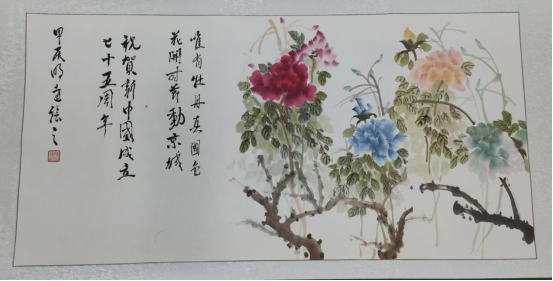 唯有牡丹真國色
花開时节動京城
祝賀新中國成立
七十五周年
甲辰